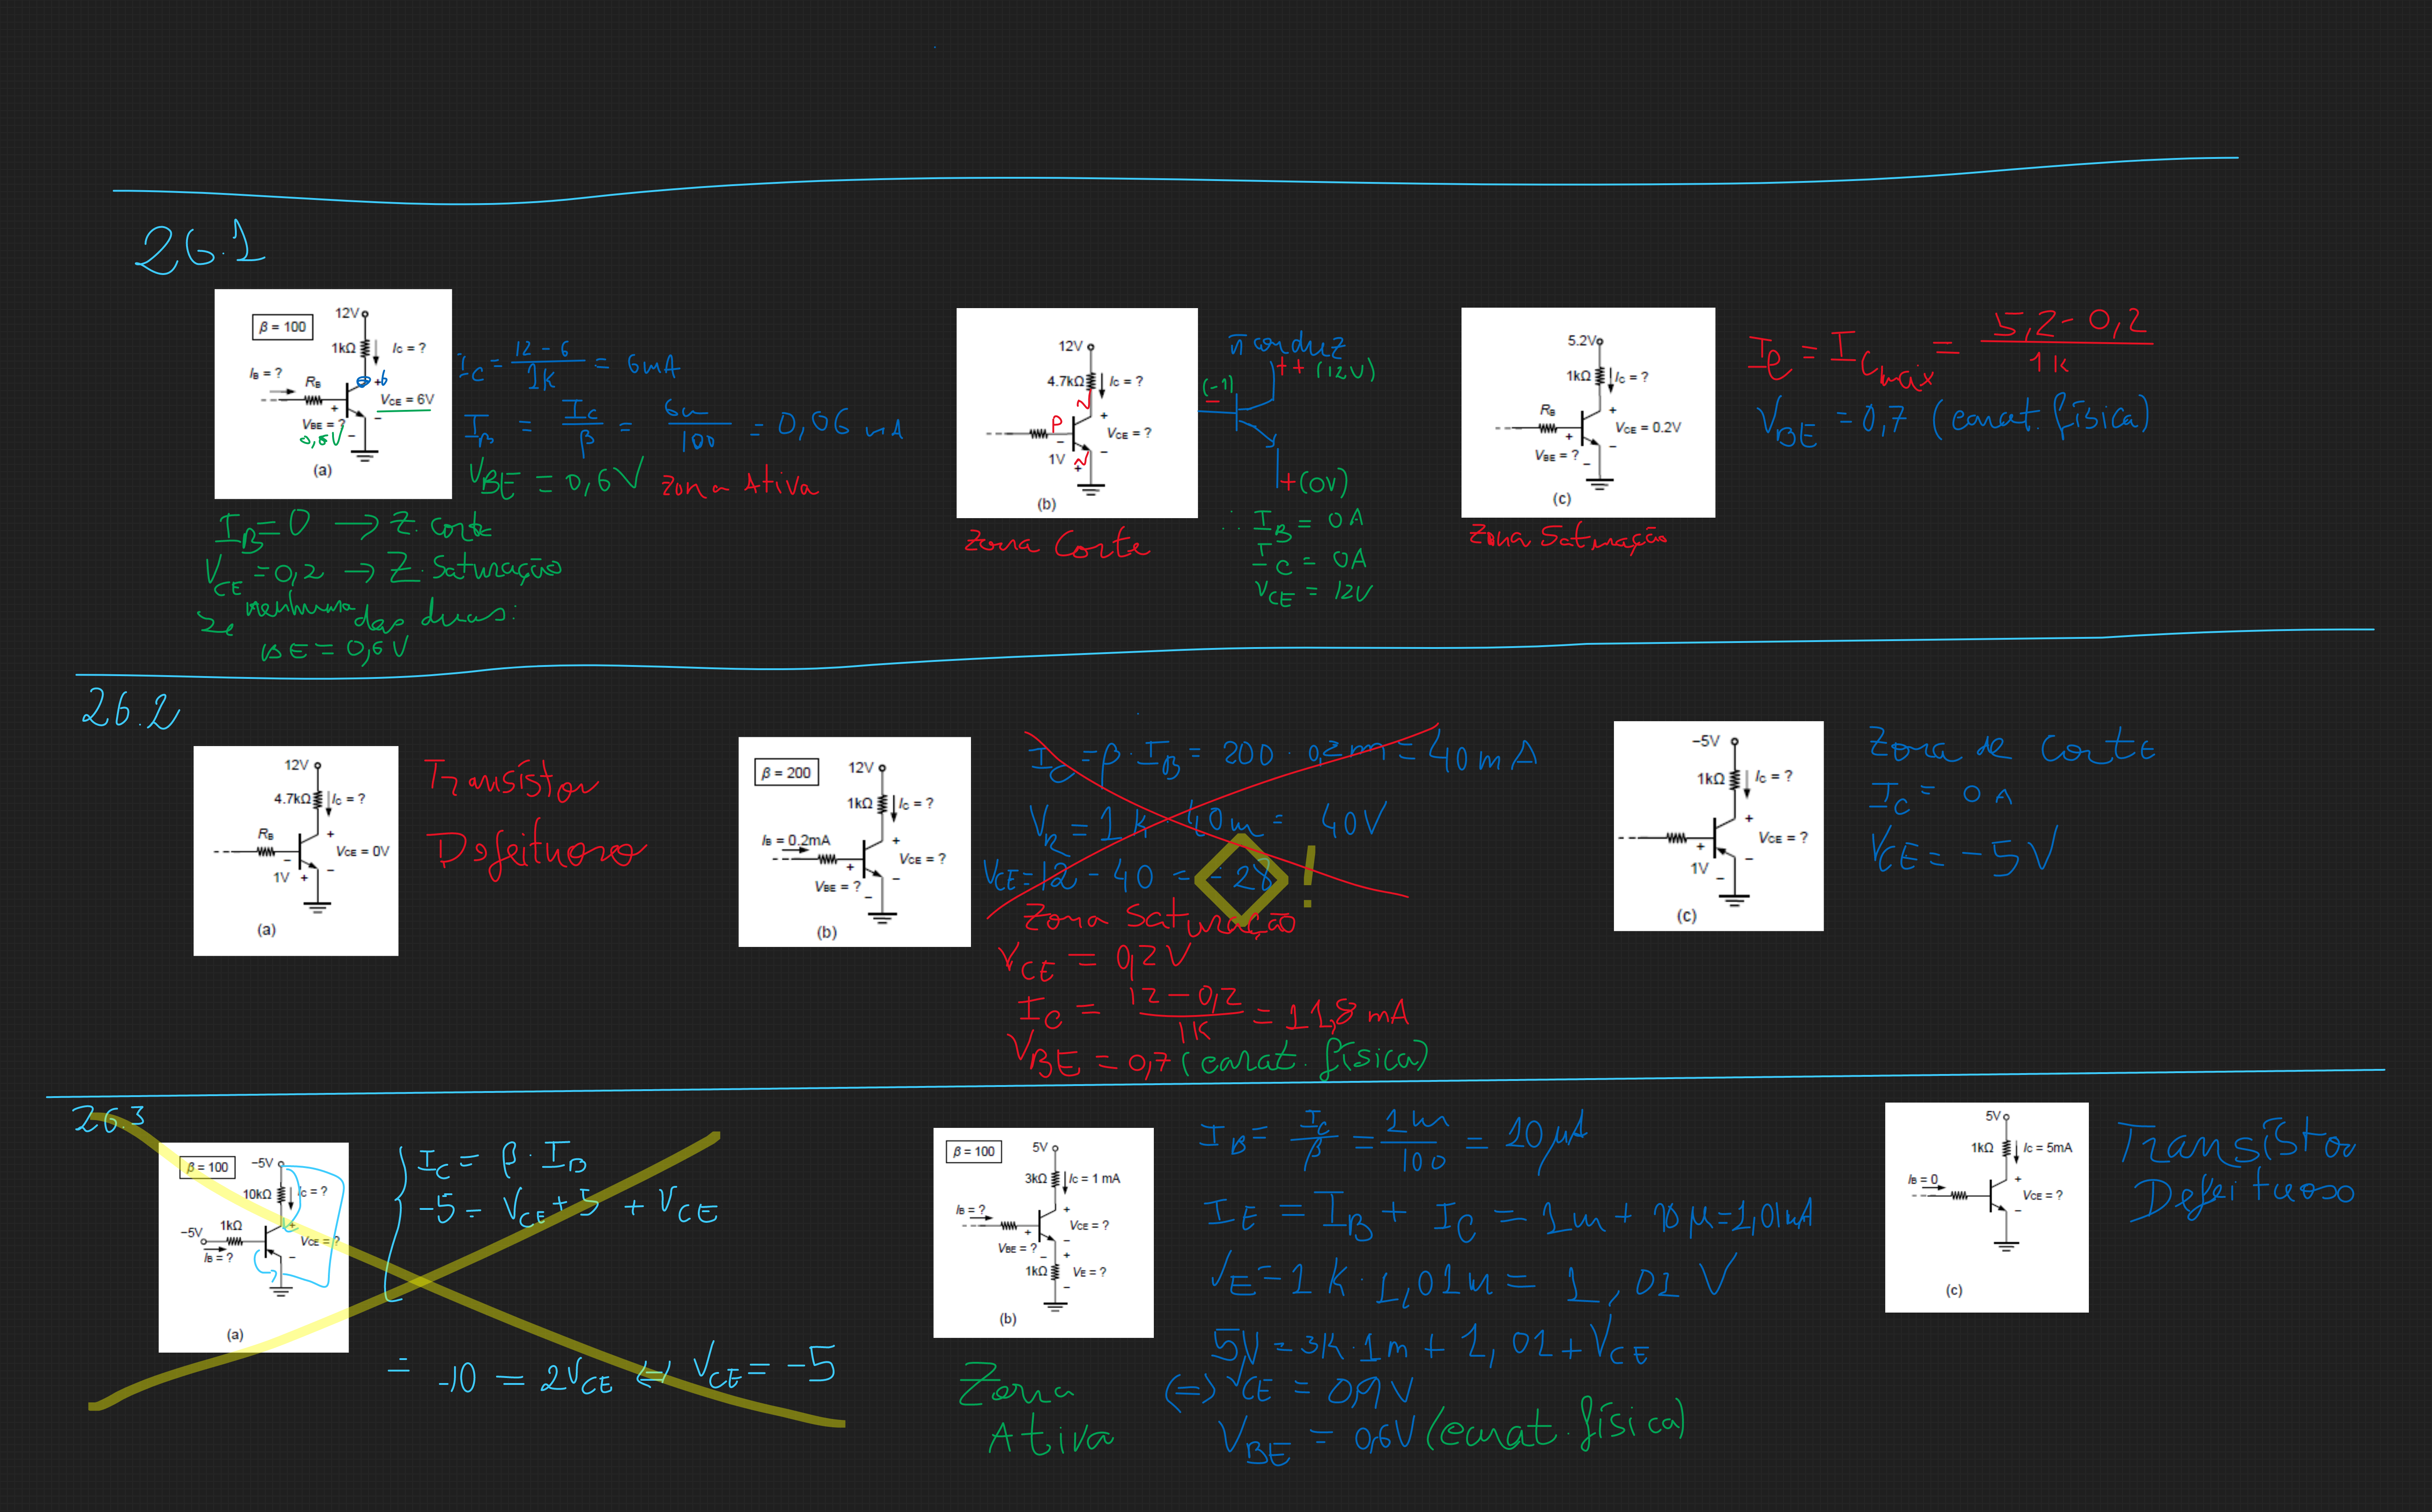 26.1
β = 100
12V
1kΩ
IC = ?
6
IB = ?
RB
VCE = 6V
VBE = ?
0,6V
(a)
IC = 12 - 6 / 1K = 6mA
IB = IC / β = 6m / 100 = 0,06 mA
VBE = 0,6V zona Ativa
IB = 0 → Z. corte
VCE = 0,2 → Z. Saturação
se nenhuma das duas:
BE = 0,6 V
12V
4.7kΩ
IC = ?
N
P
VCE = ?
1V
N
(b)
Zona Corte
n̄ conduz
(-1)
++ (12V)
+(0V)
∴ IB = 0A
IC = 0A
VCE = 12V
5.2V
1kΩ
IC = ?
RB
VCE = 0.2V
VBE = ?
(c)
Zona Saturação
IC = ICmáx = 5,2 - 0,2 / 1K
VBE = 0,7 (carat. física)
26.2
12V
4.7kΩ
IC = ?
RB
VCE = 0V
1V
(a)
Transístor
Defeituoso
β = 200
12V
1kΩ
IC = ?
IB = 0.2mA
VCE = ?
VBE = ?
(b)
IC = β · IB = 200 · 0,2m = 40mA
VR = 1K · 40m = 40V
VCE = 12 - 40 = -28 !
Zona Saturação
VCE = 0,2V
IC = 12 - 0,2 / 1K = 11,8 mA
VBE = 0,7 (carat. física)
−5V
1kΩ
IC = ?
VCE = ?
1V
(c)
Zona de corte
IC = 0 A
VCE = -5V
26.3
β = 100
−5V
10kΩ
IC = ?
−5V
1kΩ
VCE = ?
IB = ?
(a)
IC = β · IB
-5 = VCE + 5 + VCE
= -10 = 2VCE ⇔ VCE = -5
β = 100
5V
3kΩ
IC = 1 mA
IB = ?
VCE = ?
VBE = ?
1kΩ
VE = ?
(b)
Zona
Ativa
IB = IC / β = 1m / 100 = 10 μA
IE = IB + IC = 1m + 10μ = 1,01mA
VE = 1K · 1,01m = 1,01 V
5V = 3K · 1m + 1,01 + VCE
(=) VCE = 0,9V
VBE = 0,6V (carat. física)
5V
1kΩ
IC = 5mA
IB = 0
VCE = ?
(c)
Transístor
Defeituoso